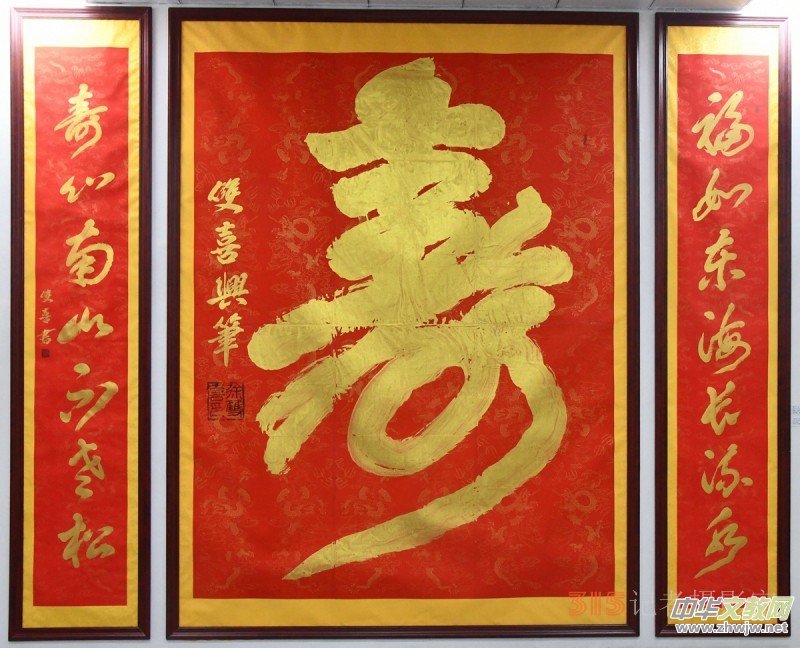 福如东海长流水
寿
雙喜興筆
寿比南山不老松
雙喜書
315记者摄影
中华文教网
www.zhwjw.net